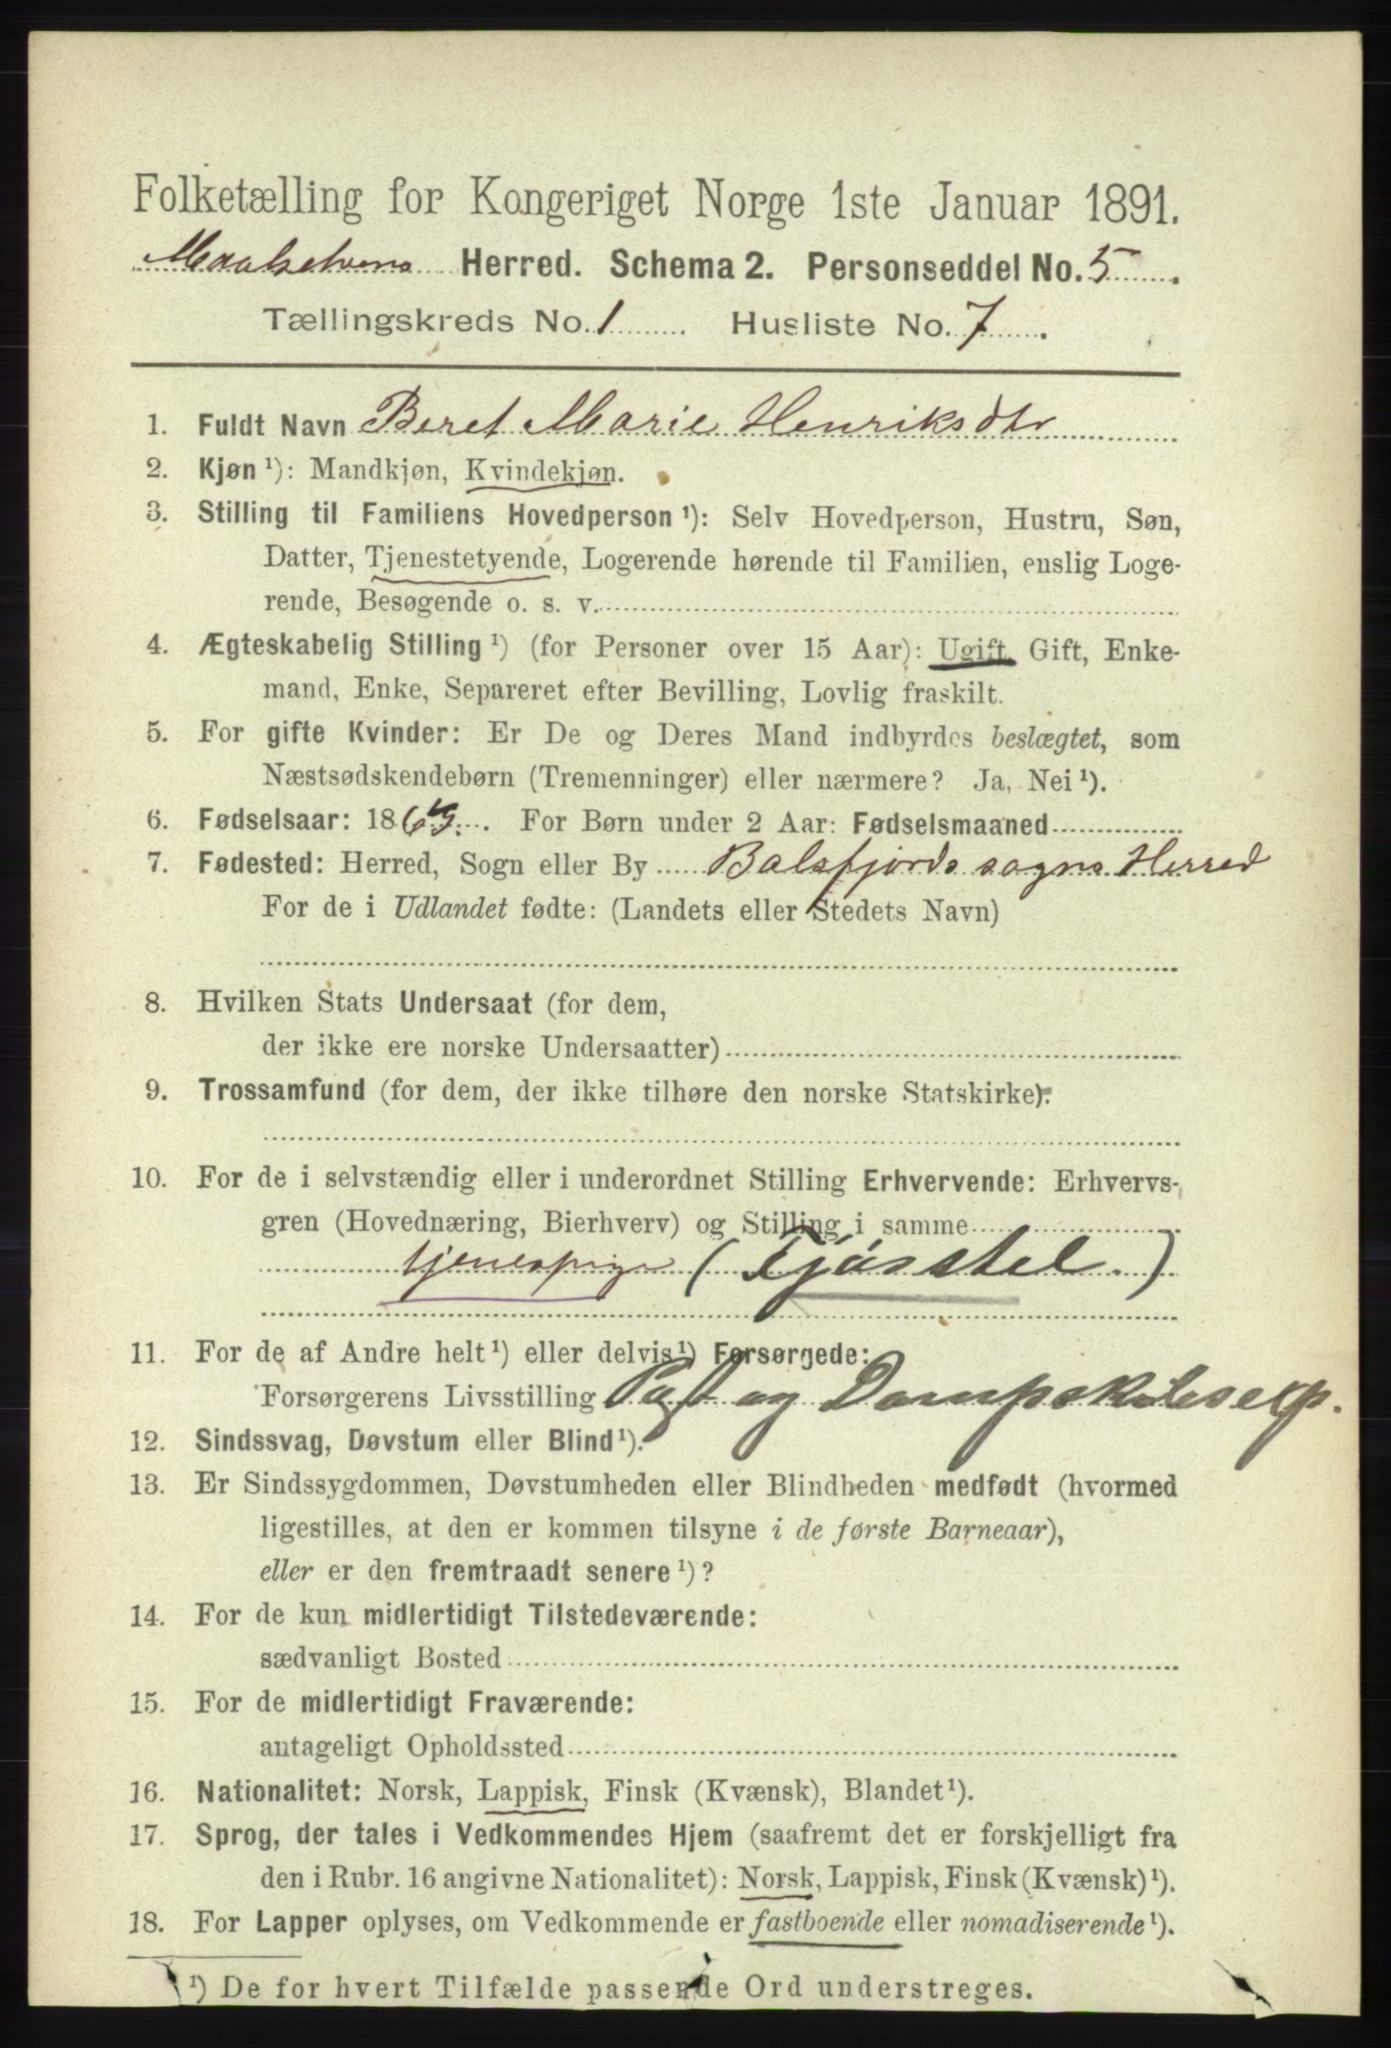 Folketælling for Kongeriget Norge 1ste Januar 1891.
Maalselvens Herred. Schema 2. Personseddel No. 5.
Tællingskreds No. 1 Husliste No. 7.
1. Fuldt Navn Beret Marie Henriksdtr
2. Kjøn ¹): Mandkjøn, Kvindekjøn.
3. Stilling til Familiens Hovedperson ¹): Selv Hovedperson, Hustru, Søn,
Datter, Tjenestetyende, Logerende hørende til Familien, enslig Loge-
rende, Besøgende o. s. v.
4. Ægteskabelig Stilling ¹) (for Personer over 15 Aar): Ugift, Gift, Enke-
mand, Enke, Separeret efter Bevilling, Lovlig fraskilt.
5. For gifte Kvinder: Er De og Deres Mand indbyrdes beslægtet, som
Næstsødskendebørn (Tremenninger) eller nærmere? Ja, Nei ¹).
6. Fødselsaar: 186 . For Børn under 2 Aar: Fødselsmaaned
7. Fødested: Herred, Sogn eller By Balsfjords sogns Herred
For de i Udlandet fødte: (Landets eller Stedets Navn)
8. Hvilken Stats Undersaat (for dem,
der ikke ere norske Undersaatter)
9. Trossamfund (for dem, der ikke tilhøre den norske Statskirke):
10. For de i selvstændig eller i underordnet Stilling Erhvervende: Erhvervs-
gren (Hovednæring, Bierhverv) og Stilling i samme
tjenespige (Fjøsstel.)
11. For de af Andre helt ¹) eller delvis ¹) Forsørgede:
Forsørgerens Livsstilling Post og Dampskibsexp.
12. Sindssvag, Døvstum eller Blind ¹).
13. Er Sindssygdommen, Døvstumheden eller Blindheden medfødt (hvormed
ligestilles, at den er kommen tilsyne i de første Barneaar),
eller er den fremtraadt senere ¹)?
14. For de kun midlertidigt Tilstedeværende:
sædvanligt Bosted
15. For de midlertidigt Fraværende:
antageligt Opholdssted
16. Nationalitet: Norsk, Lappisk, Finsk (Kvænsk), Blandet ¹).
17. Sprog, der tales i Vedkommendes Hjem (saafremt det er forskjelligt fra
den i Rubr. 16 angivne Nationalitet): Norsk, Lappisk, Finsk (Kvænsk) ¹).
18. For Lapper oplyses, om Vedkommende er fastboende eller nomadiserende ¹).
¹) De for hvert Tilfælde passende Ord understreges.